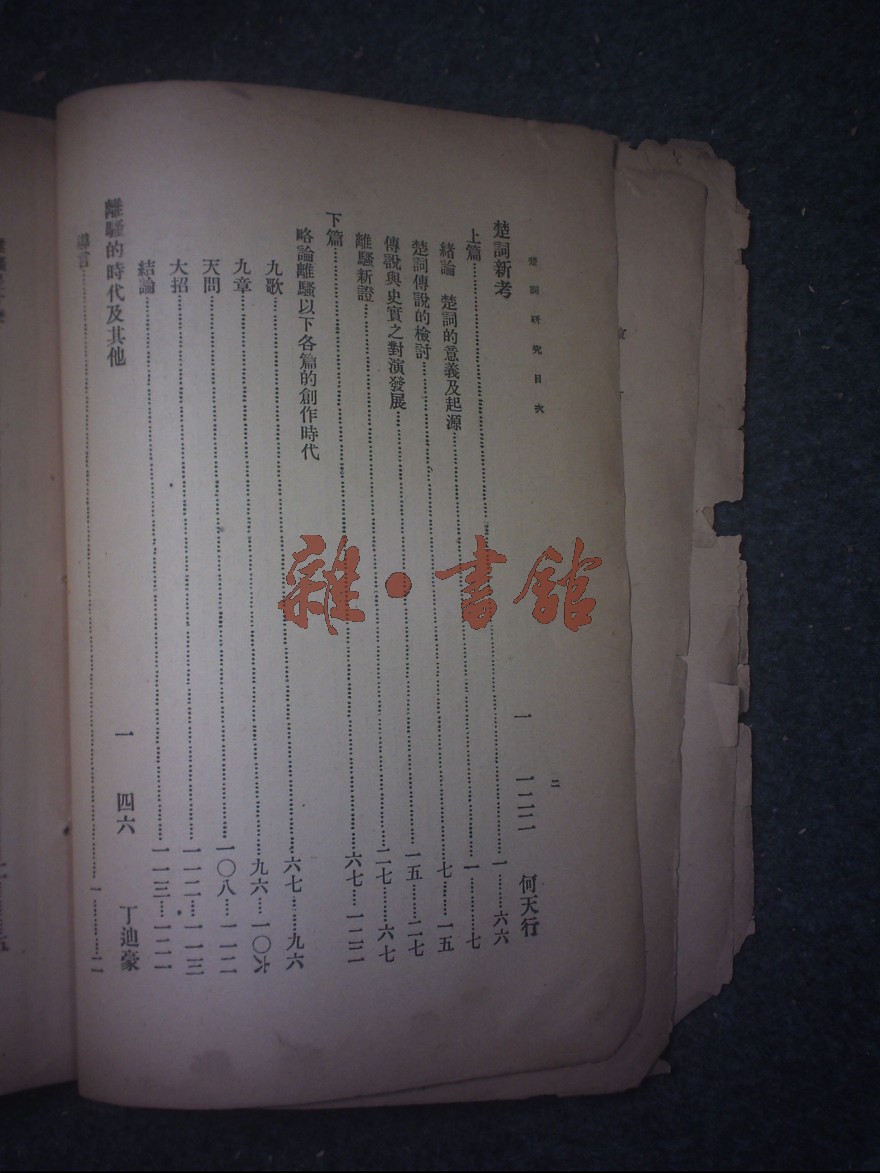 楚詞研究目次
二
楚詞新考 一 一二二 何天行
上篇……一……六六
緒論 楚詞的意義及起源……一……七
楚詞傳說的檢討……七……一五
傳說與史實之對演發展……一五……二七
離騷新證……二七……六七
下篇……六七……一二二
略論離騷以下各篇的創作時代
九歌……六七……九六
九章……九六……一〇六
天問……一〇八……一一二
大招……一一二……一一三
結論……一一三……一二一
離騷的時代及其他 一 四六 丁迪豪
導言……一……二
雜·書館